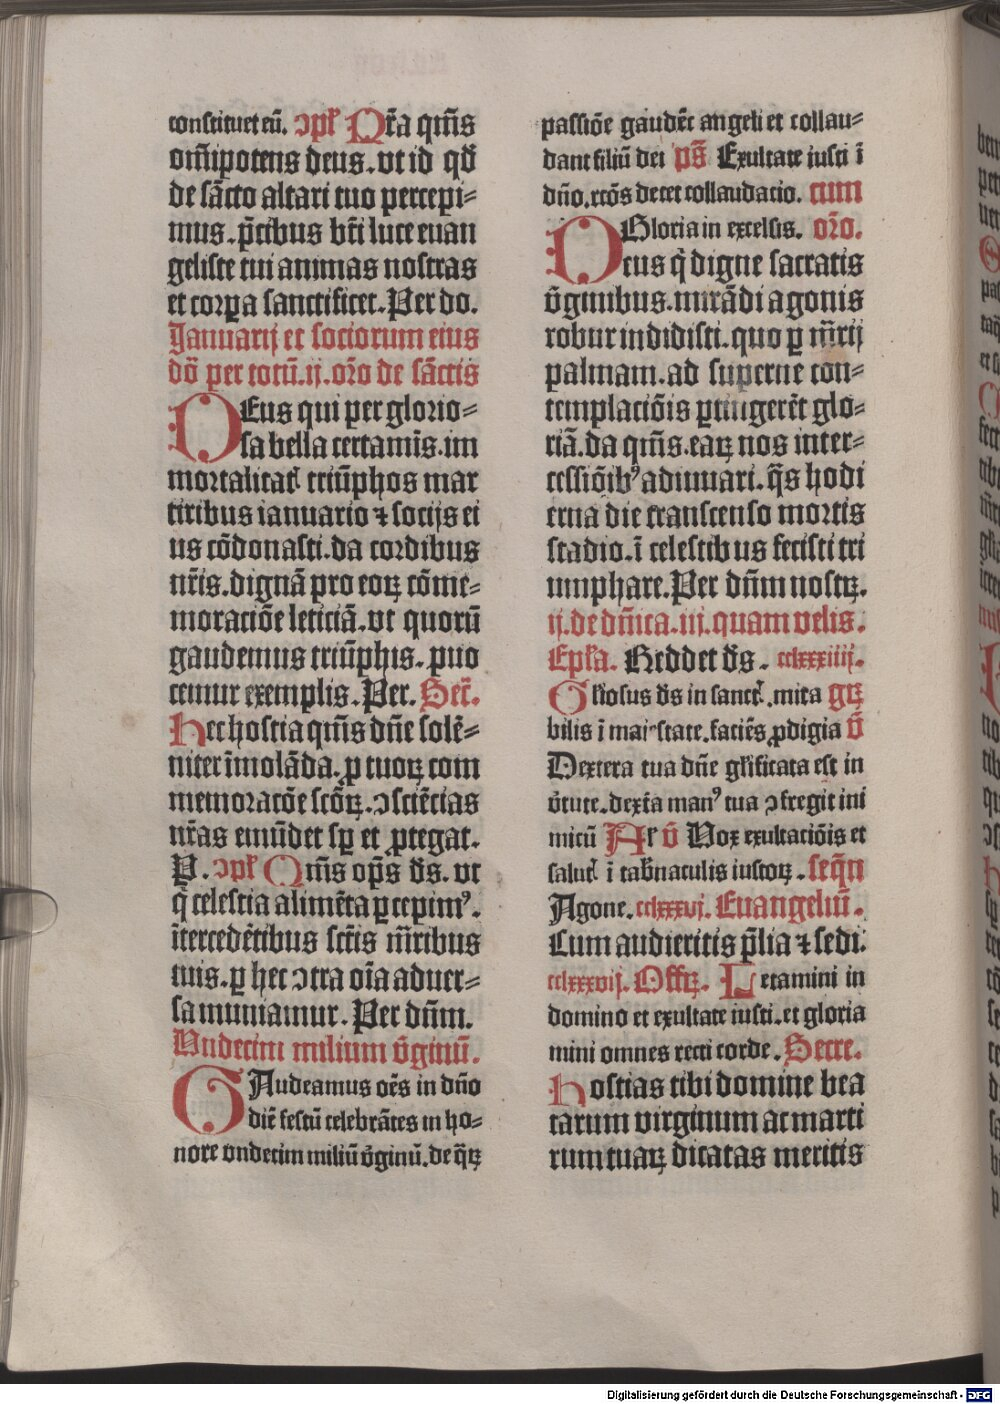 constituet eū. ꝯpl̄ Pr̄a qm̄s
om̄ipotens deus. vt id qd̄
de sācto altari tuo percepi⸗
mus. p̄cibus bt̄i luce euan
geliste tui animas nostras
et corꝑa sanctificet. Per do.
Januarij et sociorum eius
dō per totū. ij. or̄o de sāctis
DEus qui per glorio⸗
sa bella certamīs. im
mortalitat̄ triūphos mar
tiribus ianuario ⁊ socijs ei
us cōdonasti. da cordibus
nr̄is. dignā pro eoꝝ cōme⸗
moraciōe leticiā. vt quorū
gaudemus triūphis. puo
cemur exemplis. Per. Secr̄.
Hec hostia qm̄s dn̄e solē⸗
niter īmolāda. ꝓ tuoꝝ com
memoracōe scōꝝ. ꝯsciēcias
nr̄as emūdet sꝑ et ꝓtegat.
P. ꝯpl̄ Qm̄s op̄s ds̄. vt
q̄ celestia alimēta ꝑcepimꝰ.
ītercedētibus sctīs m̄ribus
tuis. ꝑ hec ꝯtra oīa aduer⸗
sa muniamur. Per dn̄m.
Vndecim milium v̄ginū.
GAudeamus oēs in dn̄o
diē festū celebrātes in ho⸗
nore vndecim miliū v̄ginū. de q̄ꝝ
passiōe gaudēt angeli et collau⸗
dant filiū dei ps̄ Exultate iusti ī
dn̄o. rcōs decet collaudacio. cum
Gloria in excelsis. or̄o.
Deus q̄ digne sacratis
v̄ginibus. mirādi agonis
robur indidisti. quo ꝑ m̄rij
palmam. ad superne con⸗
templaciōis ꝑtingerēt glo⸗
riā. da qm̄s. eaꝝ nos inter⸗
cessiōibꝰ adiuuari. q̄s hodi
erna die transcenso mortis
stadio. ī celestibus fecisti tri
umphare. Per dn̄m nostꝝ.
ij. de dn̄ica. iij. quam velis.
Epl̄a. Reddet ds̄. cclxxxiiij.
Gl̄iosus ds̄ in sanct̄. mira gꝝ
bilis ī maiestate. faciēs ꝓdigia v̄
Dextera tua dn̄e gl̄ificata est in
v̄tute. dext̄a manꝰ tua ꝯfregit ini
micū Al̄ v̄ Vox exultaciōis et
salut̄ ī tab̄naculis iustoꝝ. seqn̄
Agone. cclxxxvj. Euangeliū.
Cum audieritis p̄lia ⁊ sedi.
cclxxxvij. Offꝝ. Letamini in
domino et exultate iusti. et gloria
mini omnes recti corde. Secre.
Hostias tibi domine bea
tarum virginum ac marti
rum tuaꝝ dicatas meritis
Digitalisierung gefördert durch die Deutsche Forschungsgemeinschaft - DFG